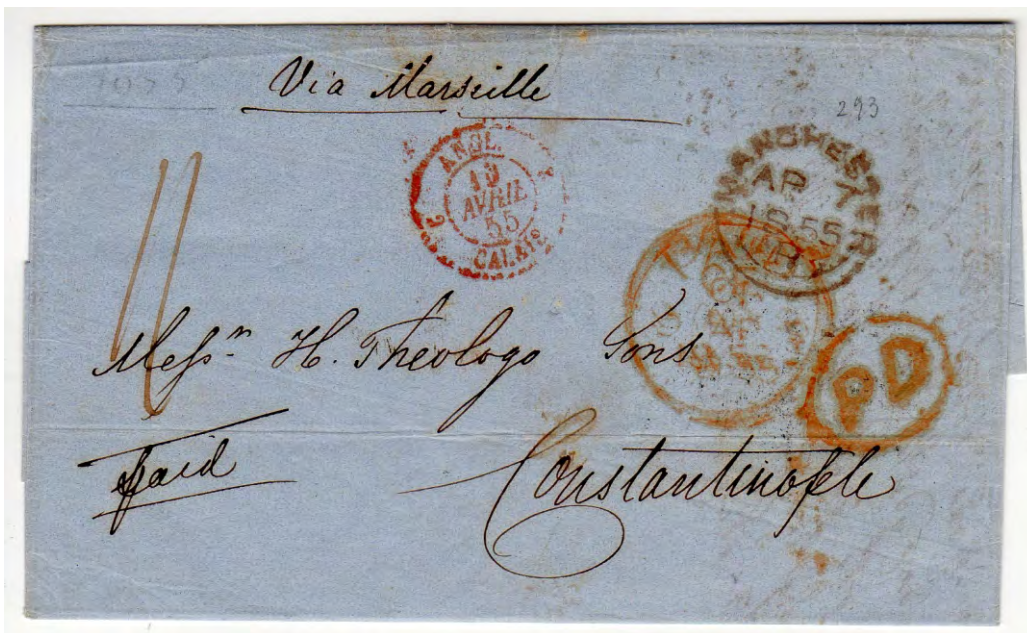 Via Marseille
293
ANGL.
AVRIL
55
CALAIS
MANCHESTER
AP 7
1855
Messrs H. Theologo Sons
PD
Paid
Constantinople